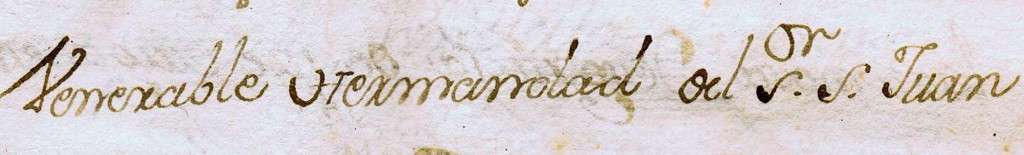 Venerable Hermandad del S.or S. Juan